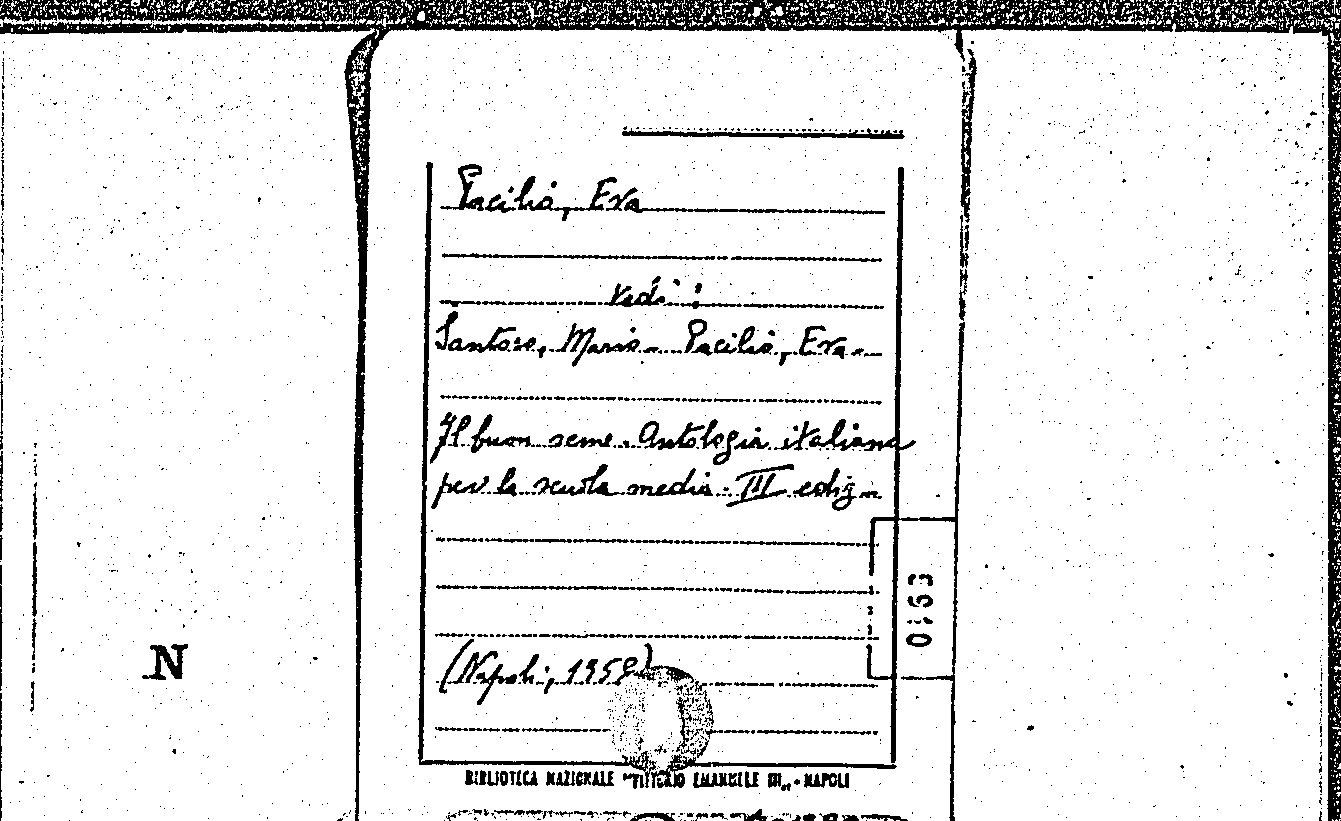 Pacilio, Eva
vedi:
Santoro, Mario - Pacilio, Eva -
Il buon seme. Antologia italiana
per la scuola media. III ediz. -
(Napoli, 1958)
0163
N
BIBLIOTECA NAZIONALE "VITTORIO EMANUELE III" - NAPOLI